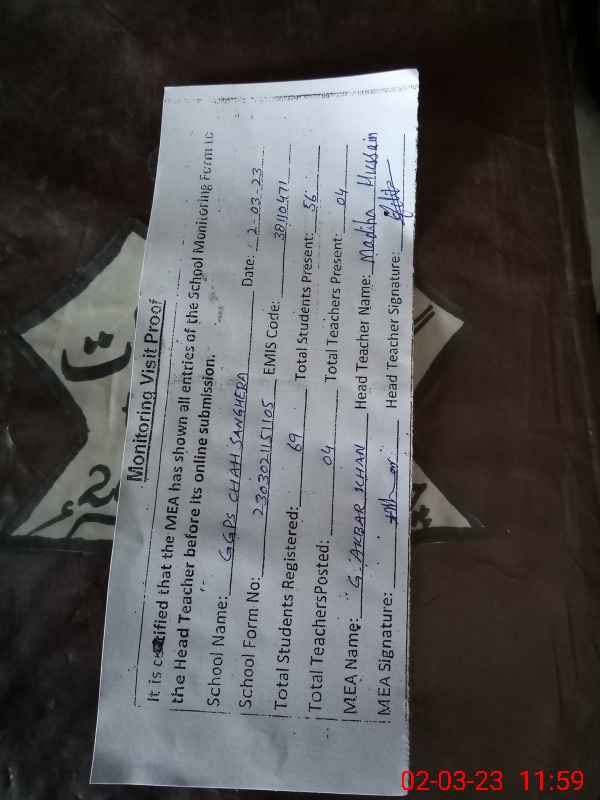 Monitoring Visit Proof
It is certified that the MEA has shown all entries of the School Monitoring Form to
the Head Teacher before its online submission.
School Name: GGPS CHAH SANGHERA Date: 2-03-23
School Form No: 2303021151105 EMIS Code: 38110471
Total Students Registered: 69 Total Students Present: 56
Total TeachersPosted: 04 Total Teachers Present: 04
MEA Name: G. AKBAR KHAN Head Teacher Name: Madiha Hussain
MEA Signature: Head Teacher Signature:
02-03-23 11:59